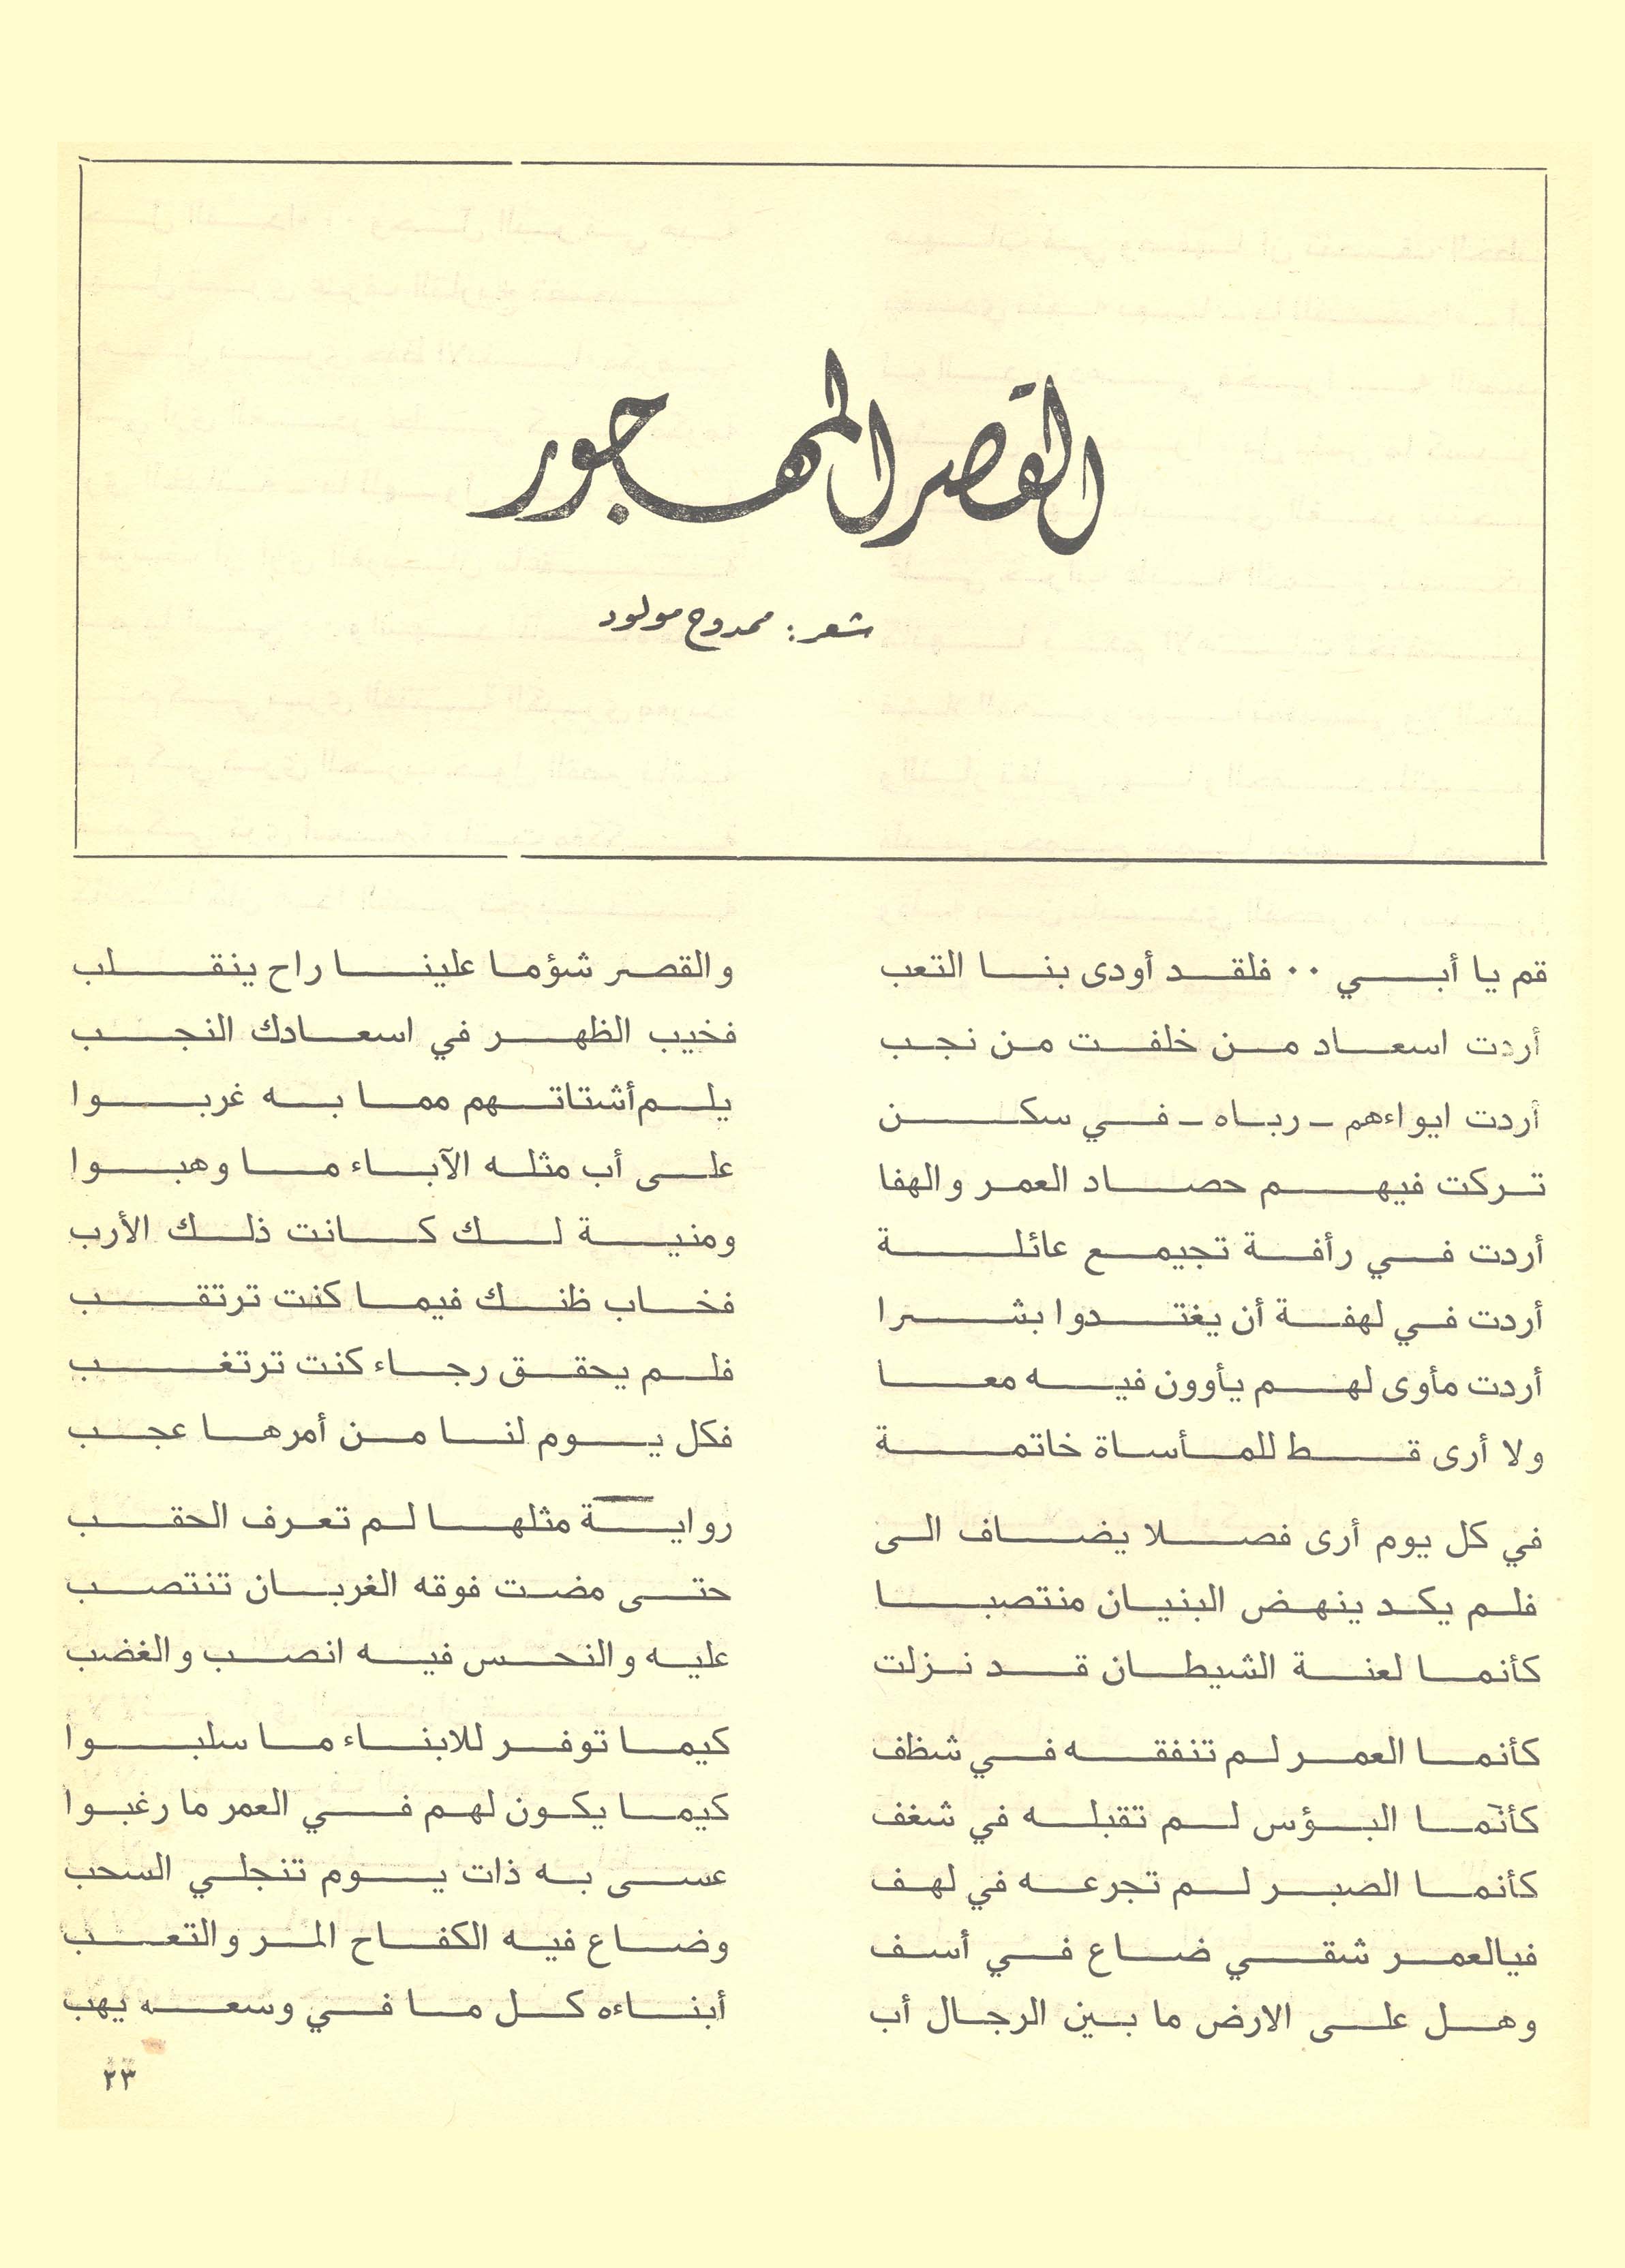 القصر المهجور
شعر: ممدوح مولود
قم يا أبي ٠٠ فلقد أودى بنا التعب والقصر شؤما علينا راح ينقلب
أردت اسعاد من خلفت من نجب فخيب الظهر في اسعادك النجب
أردت ايواءهم ـ رباه ـ في سكن يلم أشتاتهم مما به غربوا
تركت فيهم حصاد العمر والهفا على أب مثله الآباء ما وهبوا
أردت في رأفة تجيمع عائلة ومنية لك كانت ذلك الأرب
أردت في لهفة أن يغتدوا بشرا فخاب ظنك فيما كنت ترتقب
أردت مأوى لهم يأوون فيه معا فلم يحقق رجاء كنت ترتغب
ولا أرى قط للمأساة خاتمة فكل يوم لنا من أمرها عجب
في كل يوم أرى فصلا يضاف الى رواية مثلها لم تعرف الحقب
فلم يكد ينهض البنيان منتصبا حتى مضت فوقه الغربان تنتصب
كأنما لعنة الشيطان قد نزلت عليه والنحس فيه انصب والغضب
كأنما العمر لم تنفقه في شظف كيما توفر للابناء ما سلبوا
كأنما البؤس لم تقبله في شغف كيما يكون لهم في العمر ما رغبوا
كأنما الصبر لم تجرعه في لهف عسى به ذات يوم تنجلي السحب
فيالعمر شقي ضاع في أسف وضاع فيه الكفاح المر والتعب
وهل على الارض ما بين الرجال أب أبناءه كل ما في وسعه يهب
٢٣